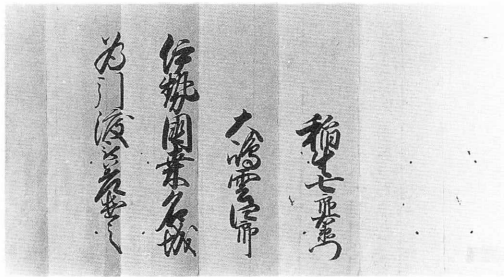 稲生七郎右衛門
大嶋雲四郎
伊勢國桑名城
為引渡
之